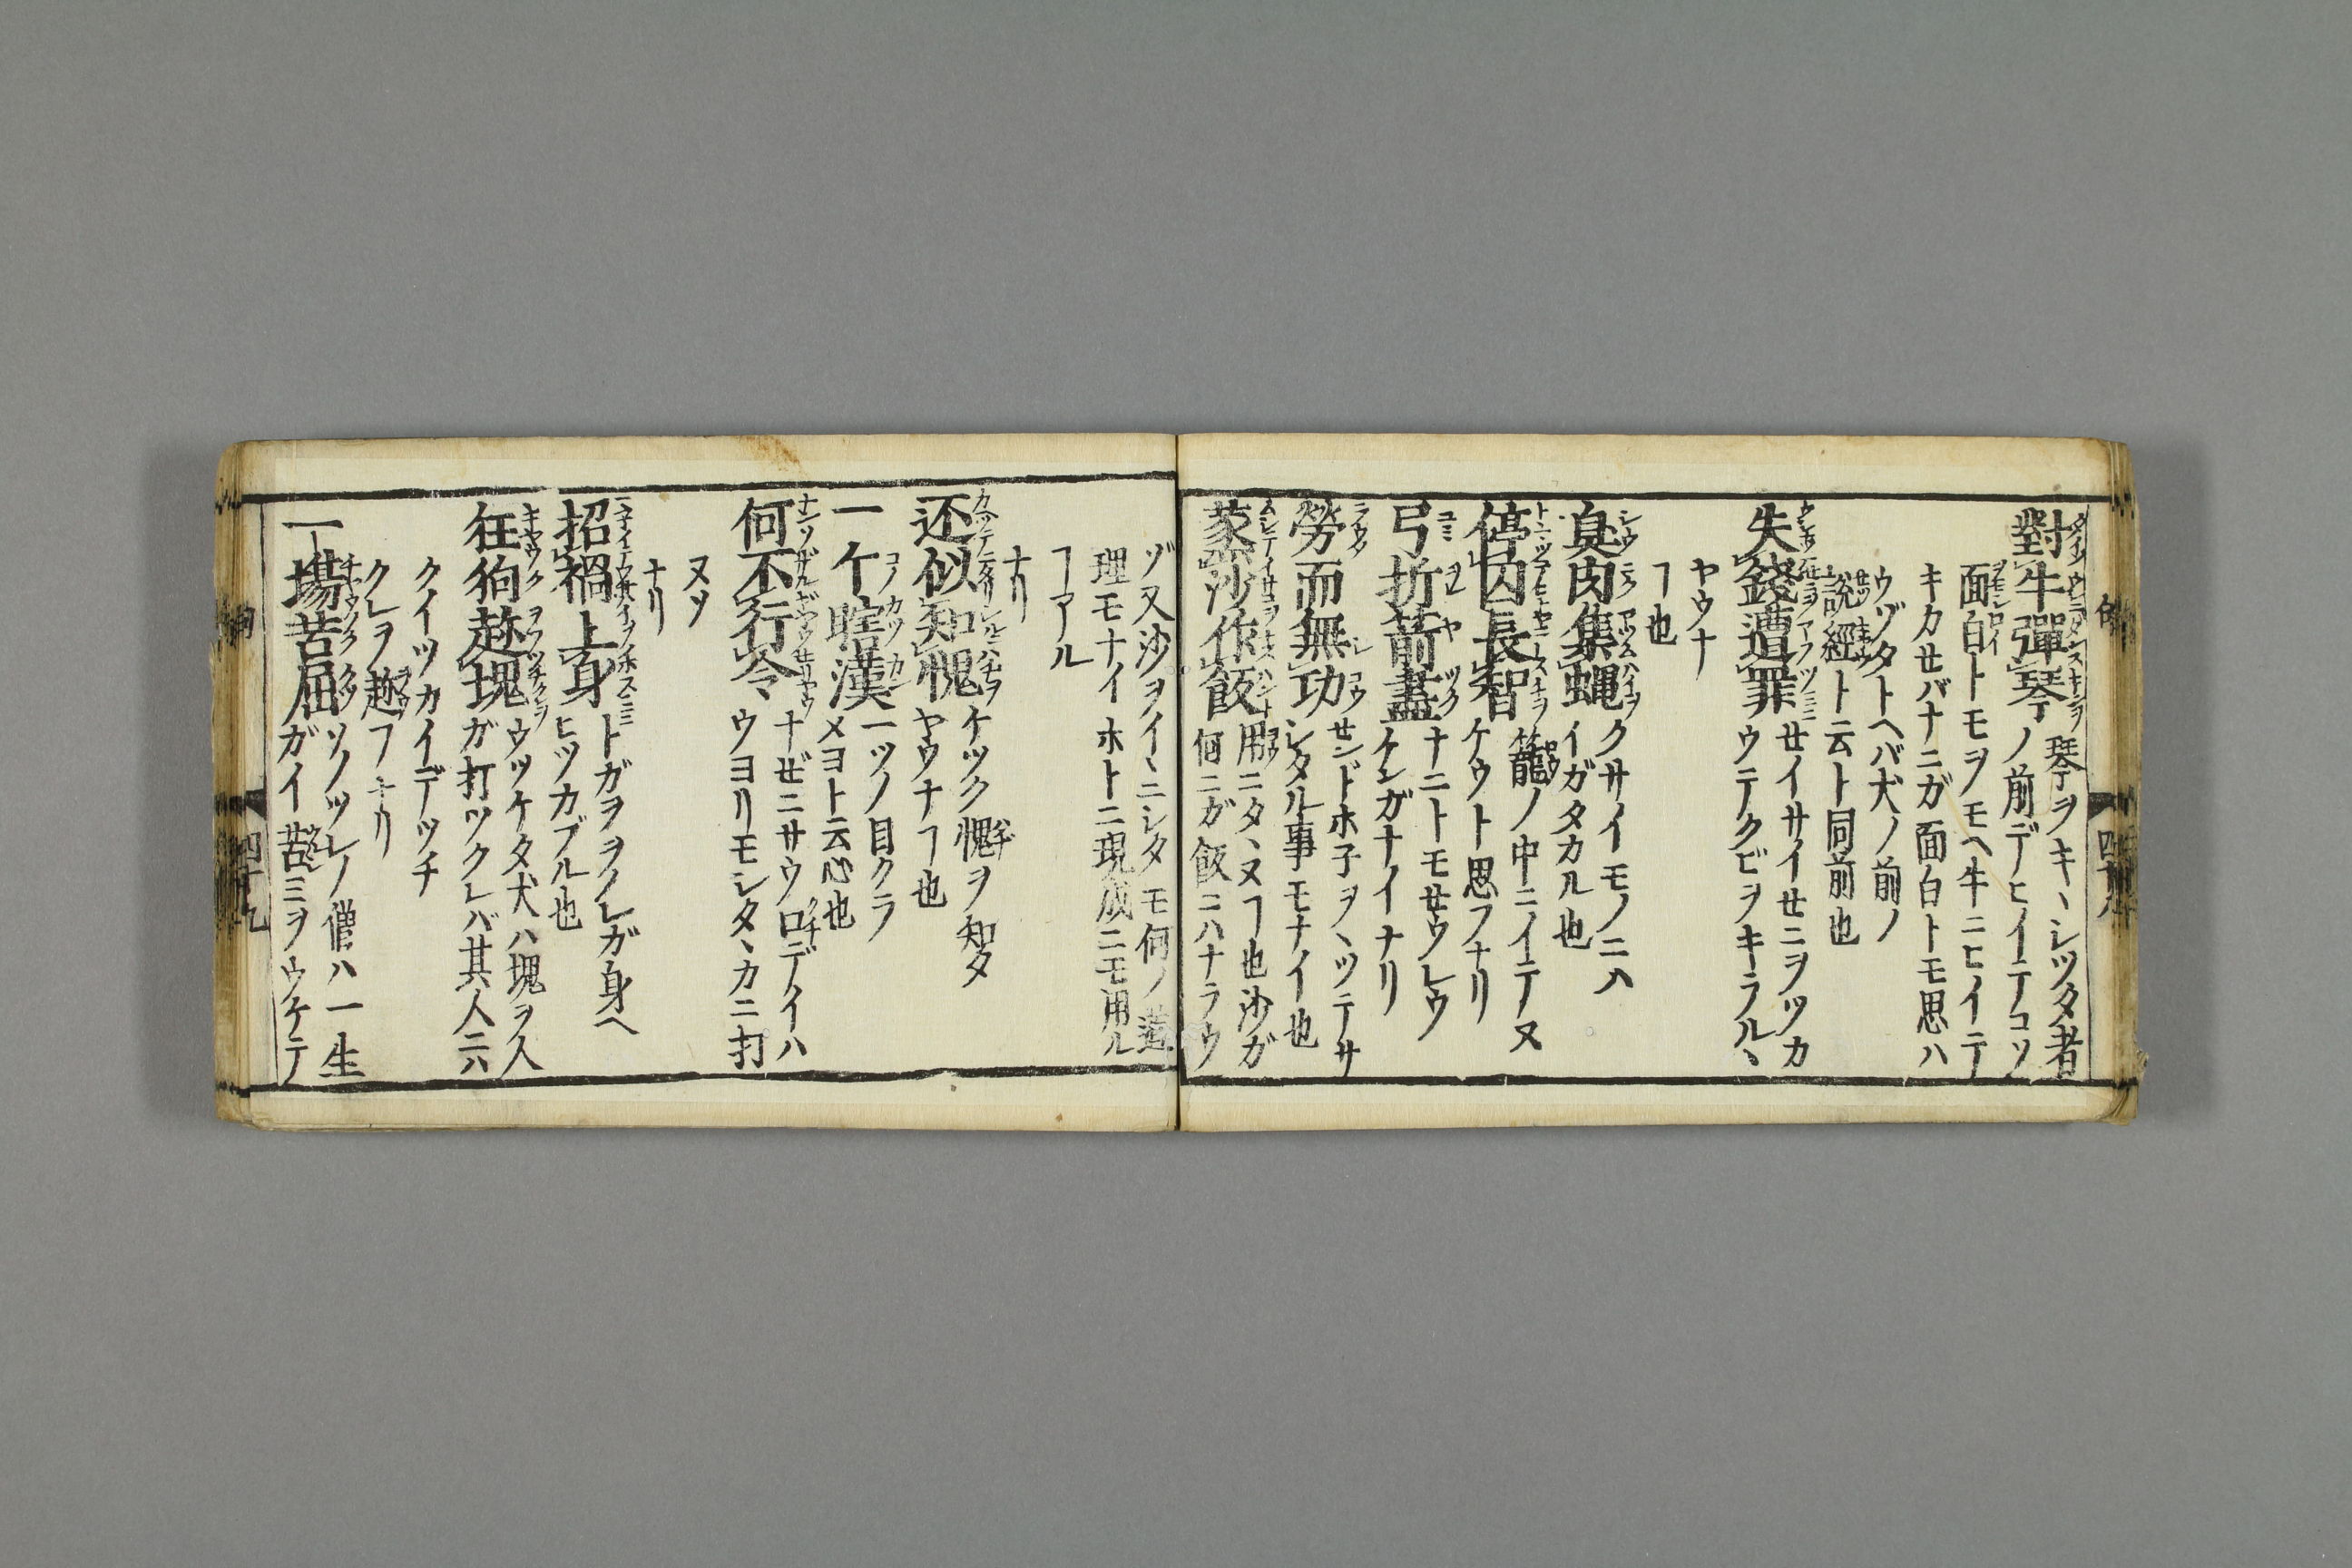 對牛彈琴
琴ヲキヽシツタ者
ノ前デヒイテコソ
面白トモヲモヘ牛ニヒイテ
キカせバナニガ面白トモ思ハ
ウゾタトヘバ犬ノ前ノ
說經ト云ト同前也
失錢遭罪
せイサイせニヲツカ
ウテクビヲキラルヽ
ヤウナ
ヿ也
臭肉集蝿
クサイモノニハ
イガタカル也
停囚長智
籠ノ中ニイテヌ
ケウト思フナリ
弓折箭盡
ナニトモせウレウ
ケンガナイナリ
勞而無功
せンドホ子ヲヽツテサ
シタル事モナイ也
蒸沙作飯
用ニタヽヌヿ也沙ガ
何ニガ飯ニハナラウ
ゾ又沙ヲイヽニシタモ何ノ道
理モナイホトニ現成ニモ用ル
ヿアル
ナリ
还似知愧
ケツク愧ヲ知タ
ヤウナヿ也
一个瞎漢
一ツノ目クラ
メヨト云心也
何不行令
ナぜニサウ口デイハ
ウヨリモシタヽカニ打
ヌソ
ナリ
招禍上身
トガヲヲノレガ身ヘ
ヒツカブル也
狂狗趂塊
ウツケタ犬ハ塊ヲ人
ガ打ツクレバ其人ニハ
クイツカイデツチ
クレヲ趂フナリ
一場苦屈
ソノツレノ僧ハ一生
ガイ苦ミヲウケテ
四十八
四十九